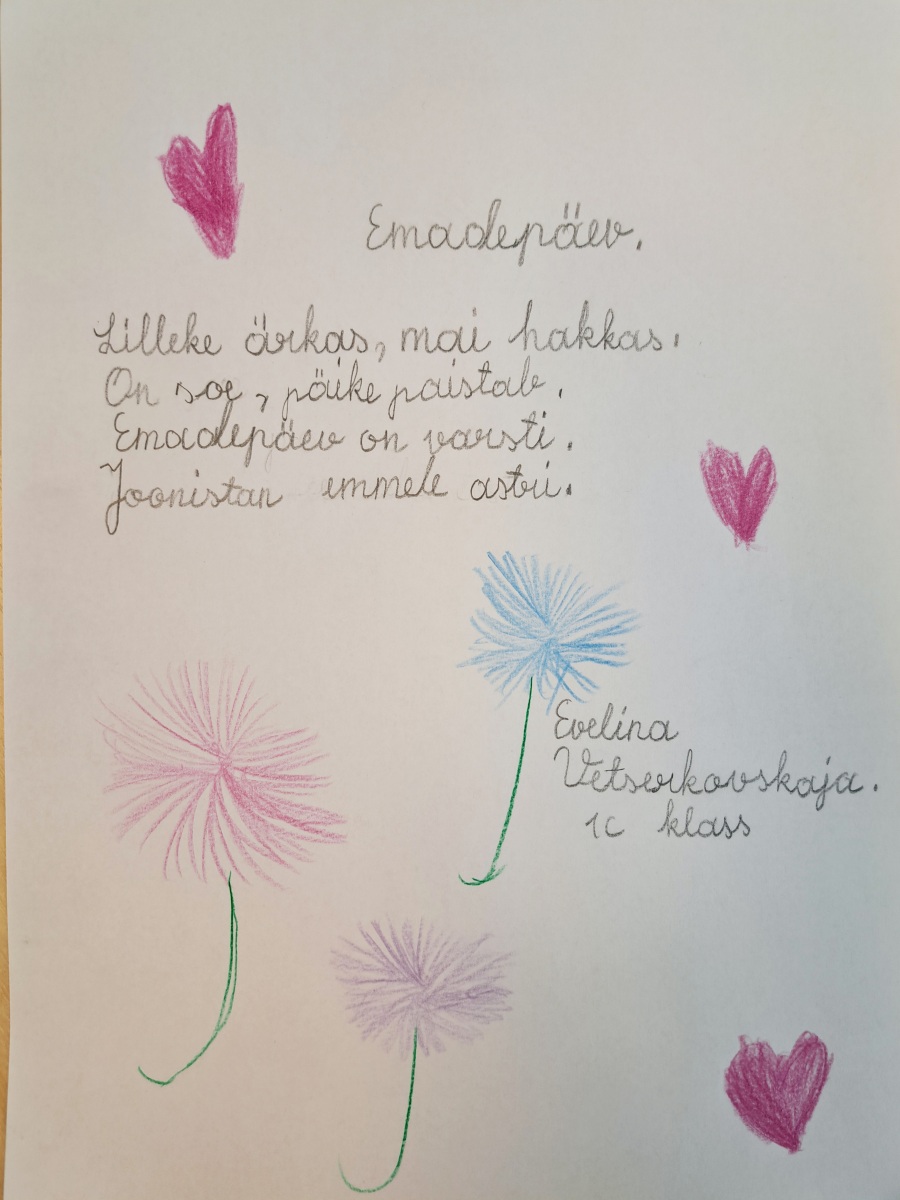 Emadepäev.
Lilleke ärkas, mai hakkas.
On soe, päike paistab.
Emadepäev on varsti.
Joonistan emmele astri.
Evelina
Vetserkovskaja.
1c klass